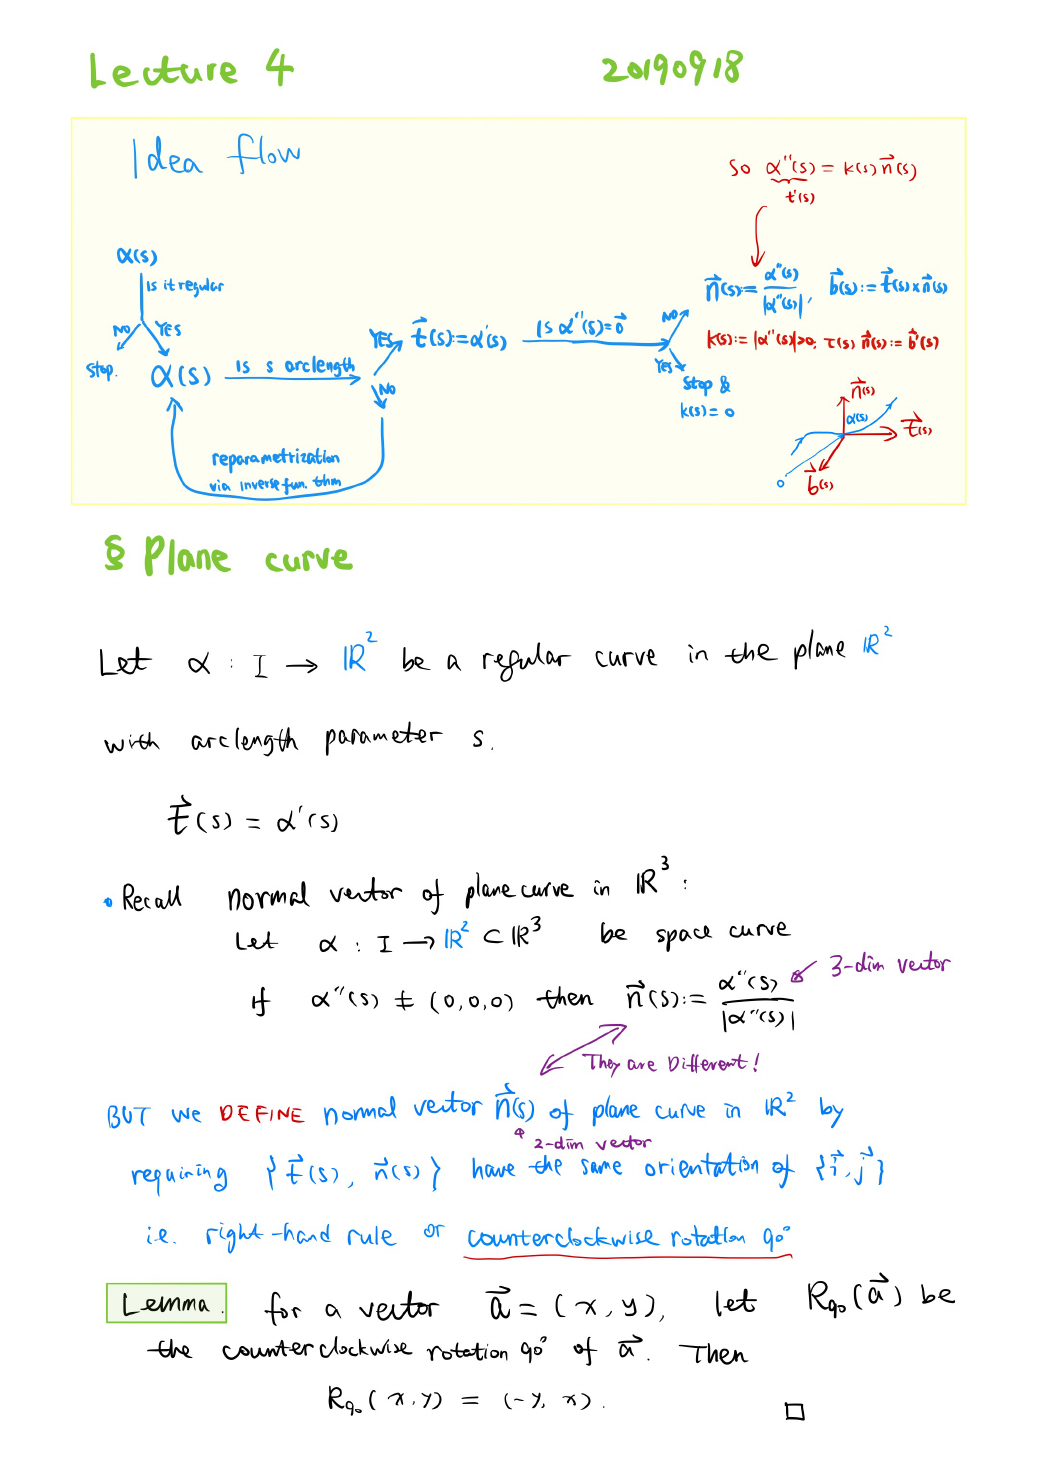 Lecture 4 20190918
Idea flow
So α''(s) = k(s) n⃗(s)
t'(s)
α(s)
Is it regular
NO YES
Stop.
α(s)
Is s arclength
YES
NO
reparametrization
via inverse fun. thm
t⃗(s):=α'(s)
Is α''(s)=0⃗
NO
YES
Stop &
k(s)=0
n⃗(s):= α''(s)/|α''(s)|, b⃗(s):=t⃗(s)×n⃗(s)
k(s):=|α''(s)|>0, τ(s) n⃗(s):=b⃗'(s)
n⃗(s)
α(s)
t⃗(s)
b⃗(s)
0
§ Plane curve
Let α : I → ℝ² be a regular curve in the plane ℝ²
with arclength parameter s.
t⃗(s) = α'(s)
• Recall normal vector of plane curve in ℝ³ :
Let α : I → ℝ² ⊂ ℝ³ be space curve
3-dim vector
if α''(s) ≠ (0,0,0) then n⃗(s):= α''(s)/|α''(s)|
They are Different!
BUT we DEFINE normal vector n⃗(s) of plane curve in ℝ² by
2-dim vector
requiring {t⃗(s), n⃗(s)} have the same orientation of {i⃗,j⃗}
i.e. right-hand rule or counterclockwise rotation 90°
Lemma. for a vector a⃗ = (x,y), let R₉₀(a⃗) be
the counterclockwise rotation 90° of a⃗. Then
R₉₀(x,y) = (-y, x). □